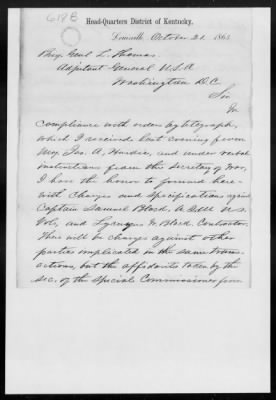 618 B
Head-Quarters District of Kentucky,
Louisville October 21. 1863
Brig Genl L. Thomas
Adjutant General U.S.A
Washington D.C.
Sir
In
compliance with orders by telegraph
which I received last evening from
Maj Jas. A. Hardie, and under verbal
instructions from the Secretary of War,
I have the honor to forward here-
with Charges and Specifications against
Captain Samuel Black. A.Q.M. U.S.
Vols, and H. Black. Contractor.
There will be charges against other
parties implicated in the same trans-
actions, but the affidavits taken by the
sec. of the Special Commissioner from